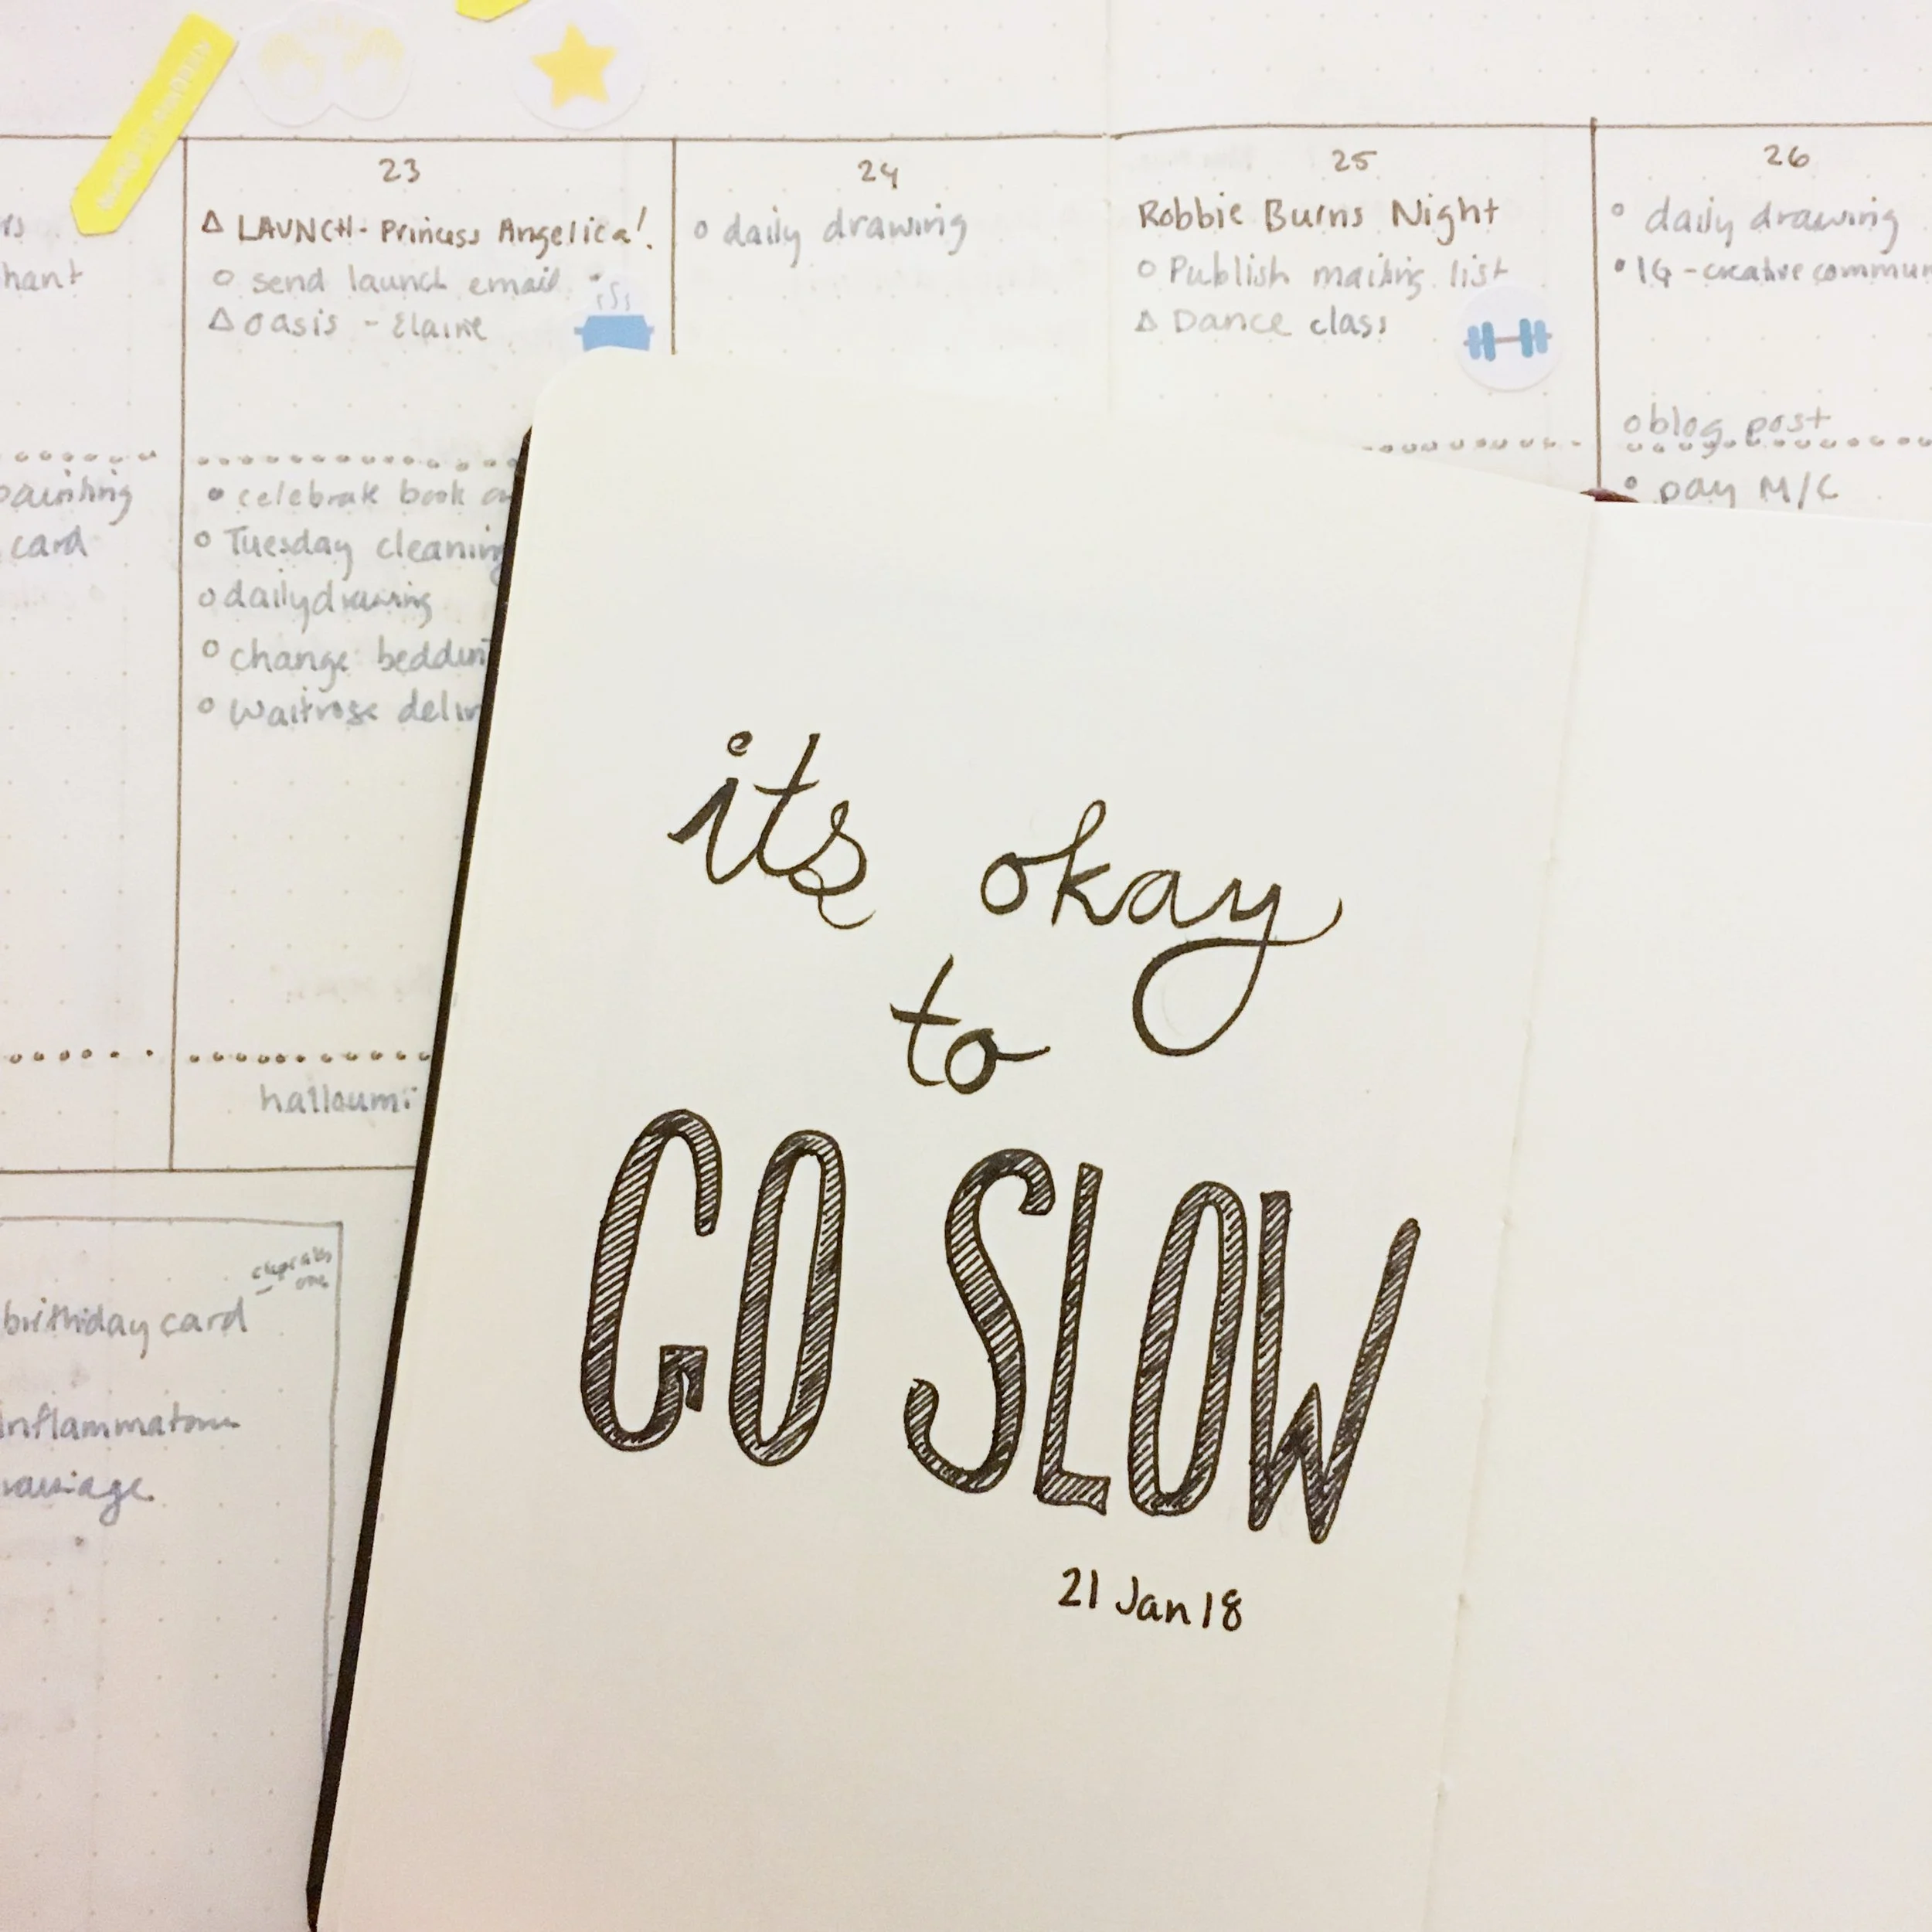 23
△ LAUNCH - Princess Angelica!
○ send launch email
△ oasis - Elaine
• celebrate book
○ Tuesday cleaning
○ daily drawing
○ change bedding
○ Waitrose
halloumi
24
○ daily drawing
25
Robbie Burns Night
○ Publish mailing list
△ Dance class
26
○ daily drawing
• IG - creative commun
○ blog post
○ pay M/C
hant
card
birthday card
its okay
to
GO SLOW
21 Jan 18